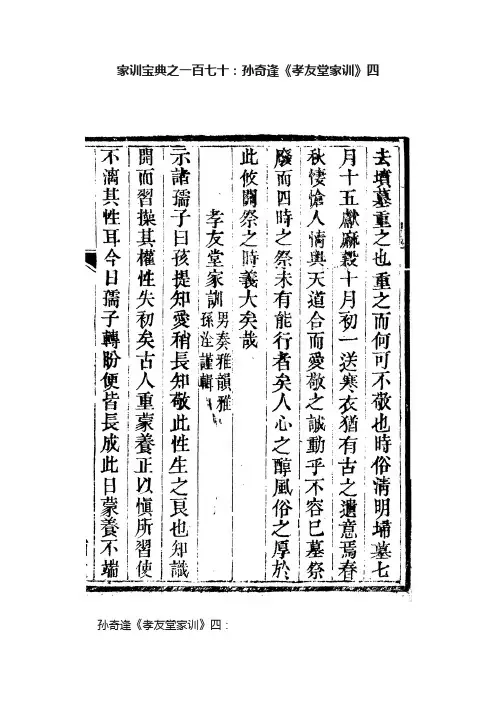 家训宝典之一百七十：孙奇逢《孝友堂家训》四
去墳墓重之也重之而何可不敬也時俗清明埽墓七
月十五獻麻穀十月初一送寒衣猶有古之遺意焉春
秋悽愴人情與天道合而愛敬之誠動乎不容已墓祭
廢而四時之祭未有能行者矣人心之醇風俗之厚於
此攸關祭之時義大矣哉
孝友堂家訓
男奏雅韻雅
孫洤謹輯
示諸孺子曰孩提知愛稍長知敬此性生之良也知識
開而習操其權性失初矣古人重蒙養正以慎所習使
不漓其性耳今日孺子轉盼便皆長成此日蒙養不端
孙奇逢《孝友堂家训》四：